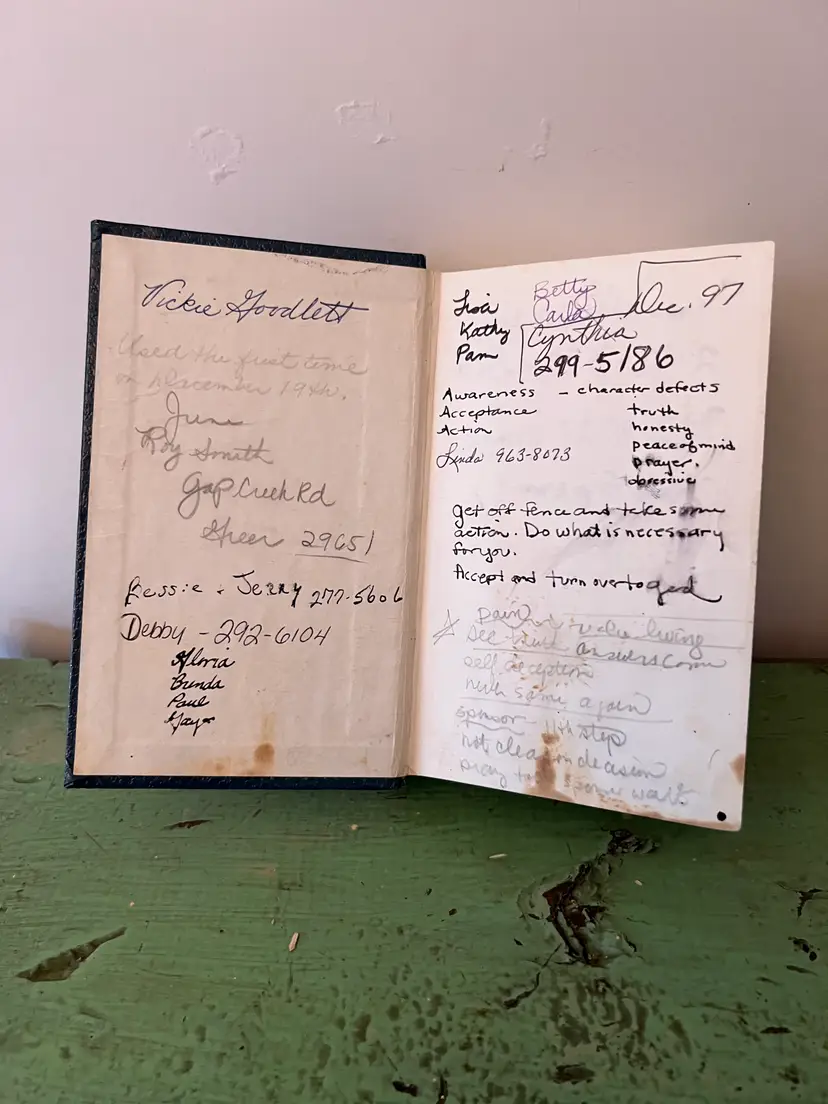 Vickie Goodlett
Used the first time
on December 1946.
June
Roy Smith
Gap Creek Rd
Greer 29651
Bessie & Jerry 277-5606
Debby - 292-6104
Gloria
Brenda
Paul
Gaye
Lisa
Kathy
Pam
Betty
Carla
Dec. 97
Cynthia
299-5186
Awareness - character defects
Acceptance
Action
truth
honesty
peace of mind
prayer.
obsessive
Linda 963-8073
get off fence and take some
action. Do what is necessary
for you.
Accept and turn over to god
pain living
see answers come
self deception
never same again
sponsor - 11th step
not clear on decision
pray